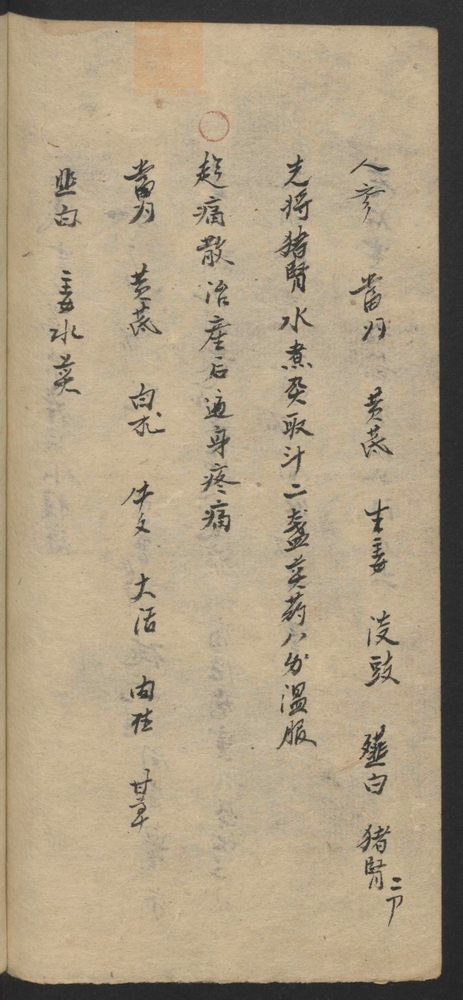 人参 當归 黄茋 生姜 淡豉 薤白 猪腎二个
先将猪腎水煮熟取汁二盞煎药八分温服
趁痛散 治產后遍身疼痛
當归 黄茋 白朮 牛夕 大活 肉桂 甘草
薤白 姜水煎